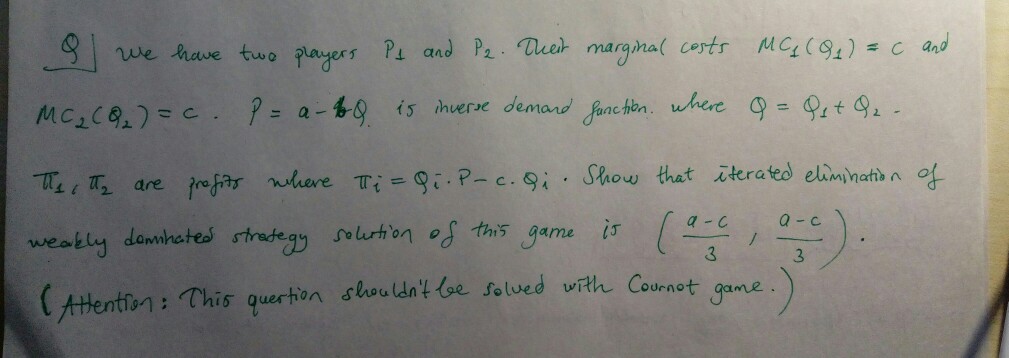 Q| we have two players P1 and P2. Their marginal costs MC1(Q1) = c and
MC2(Q2) = c. P = a-bQ is inverse demand function. where Q = Q1 + Q2.
π1, π2 are profits where πi = Qi.P - c.Qi. Show that iterated elimination of
weakly dominated strategy solution of this game is (a-c/3, a-c/3).
(Attention: This question shouldn't be solved with Cournot game.)